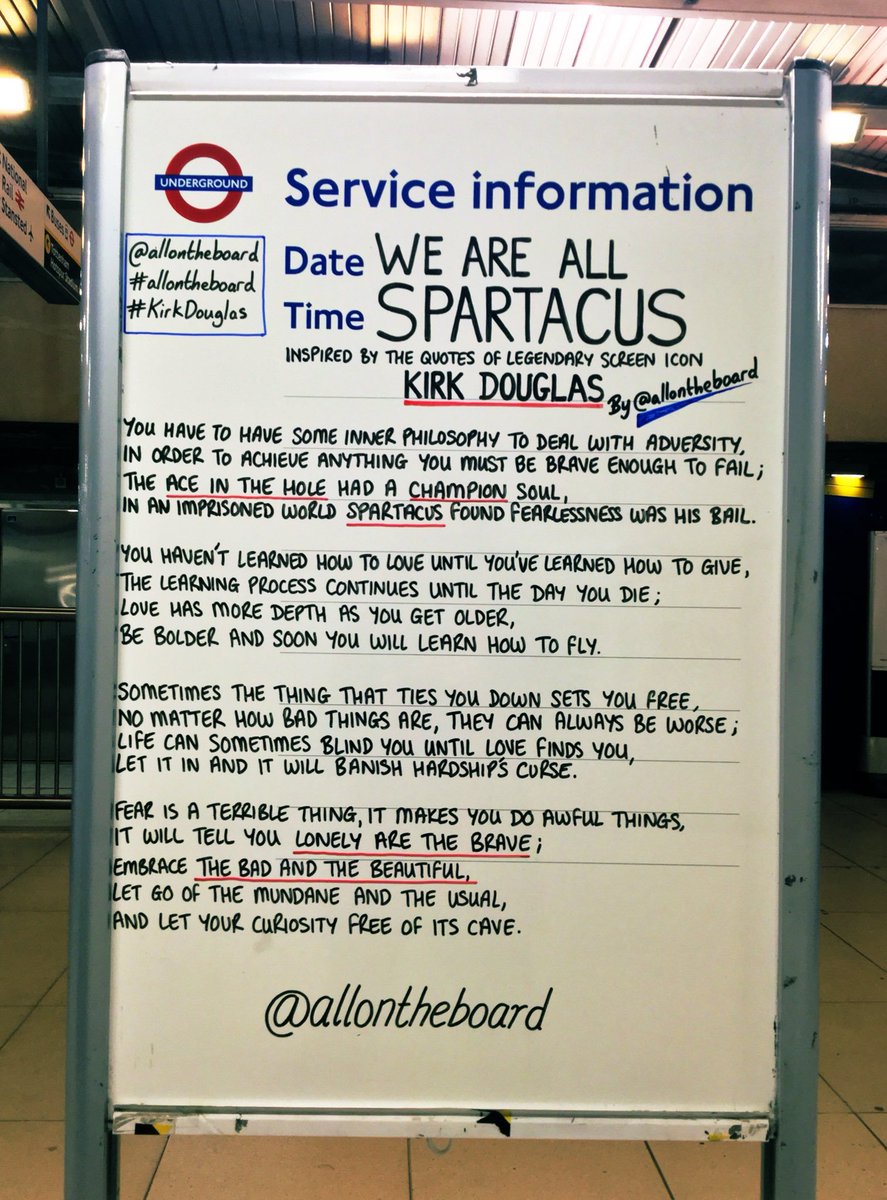 National
Rail
Stansted
Buses
Tottenham
Hotspur Stadium
UNDERGROUND
Service information
@allontheboard
#allontheboard
#KirkDouglas
Date WE ARE ALL
Time SPARTACUS
INSPIRED BY THE QUOTES OF LEGENDARY SCREEN ICON
KIRK DOUGLAS By @allontheboard
YOU HAVE TO HAVE SOME INNER PHILOSOPHY TO DEAL WITH ADVERSITY,
IN ORDER TO ACHIEVE ANYTHING YOU MUST BE BRAVE ENOUGH TO FAIL;
THE ACE IN THE HOLE HAD A CHAMPION SOUL,
IN AN IMPRISONED WORLD SPARTACUS FOUND FEARLESSNESS WAS HIS BAIL.
YOU HAVEN'T LEARNED HOW TO LOVE UNTIL YOU'VE LEARNED HOW TO GIVE,
THE LEARNING PROCESS CONTINUES UNTIL THE DAY YOU DIE;
LOVE HAS MORE DEPTH AS YOU GET OLDER,
BE BOLDER AND SOON YOU WILL LEARN HOW TO FLY.
SOMETIMES THE THING THAT TIES YOU DOWN SETS YOU FREE,
NO MATTER HOW BAD THINGS ARE, THEY CAN ALWAYS BE WORSE;
LIFE CAN SOMETIMES BLIND YOU UNTIL LOVE FINDS YOU,
LET IT IN AND IT WILL BANISH HARDSHIP'S CURSE.
FEAR IS A TERRIBLE THING, IT MAKES YOU DO AWFUL THINGS,
IT WILL TELL YOU LONELY ARE THE BRAVE;
EMBRACE THE BAD AND THE BEAUTIFUL,
LET GO OF THE MUNDANE AND THE USUAL,
AND LET YOUR CURIOSITY FREE OF ITS CAVE.
@allontheboard